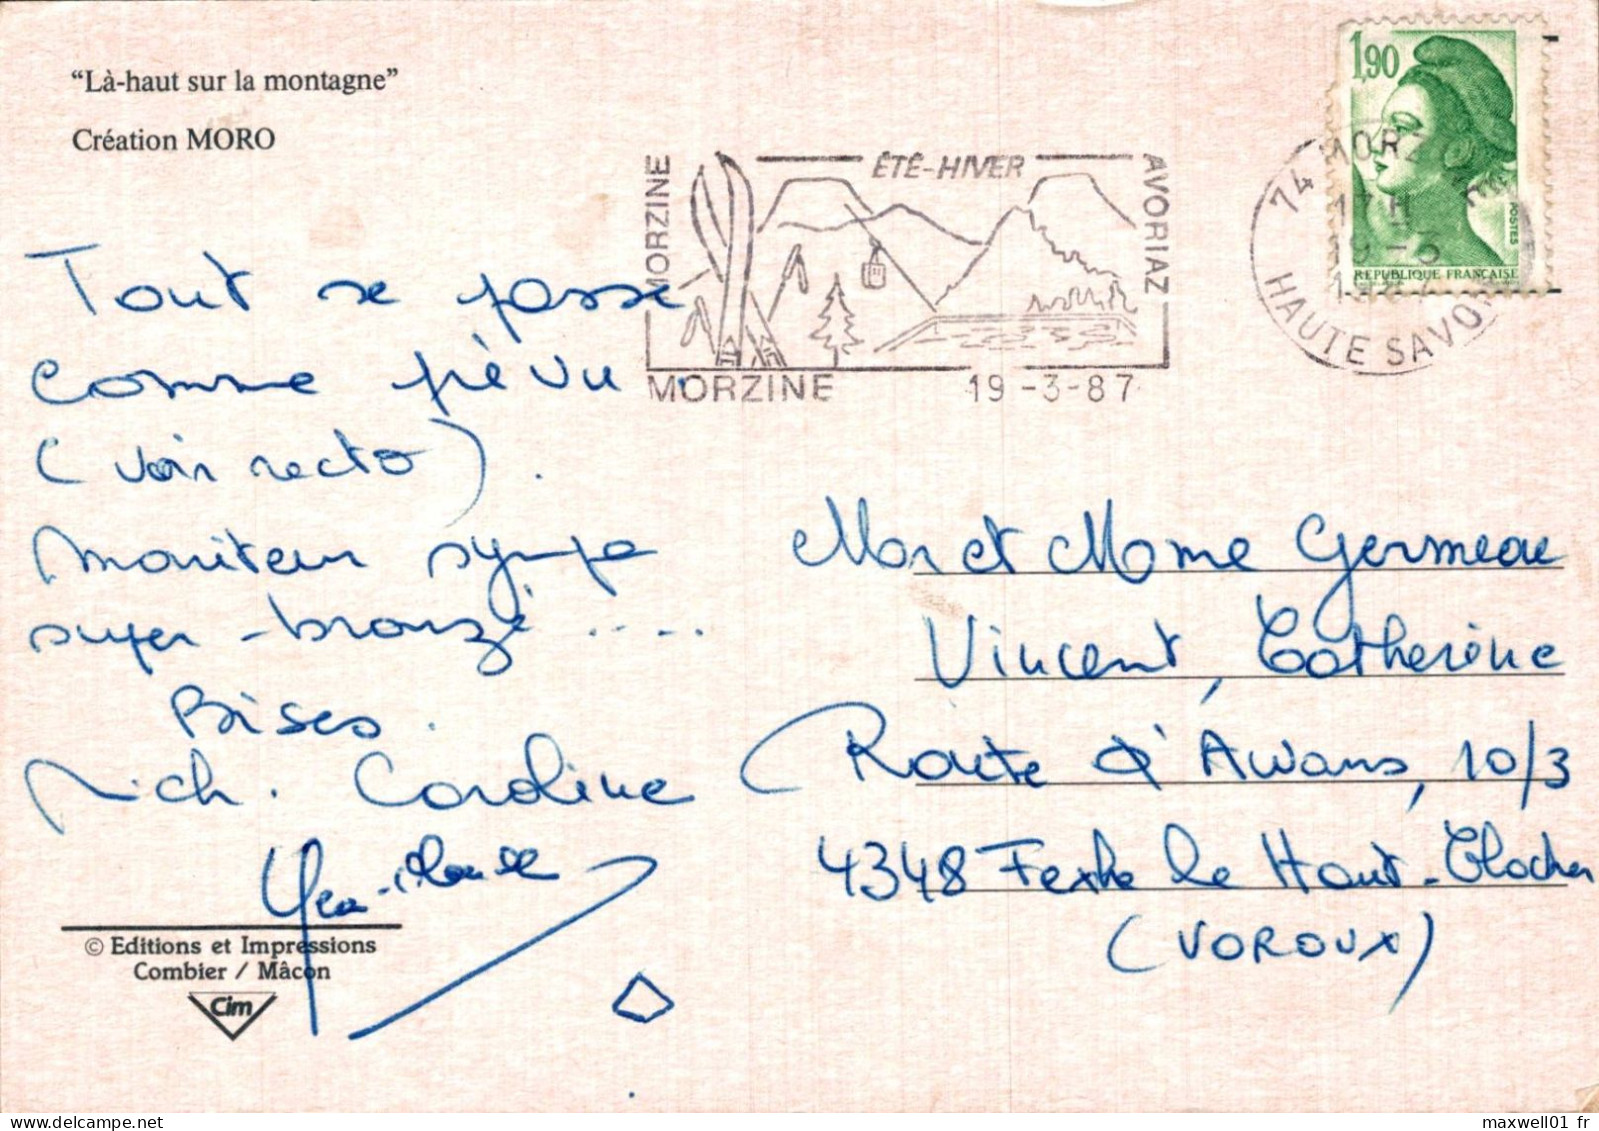 “Là-haut sur la montagne”
Création MORO
1,90
POSTES
REPUBLIQUE FRANÇAISE
MORZINE
ÉTÉ-HIVER
AVORIAZ
MORZINE 19-3-87
74
17H
19-3
HAUTE SAVOIE
Tout se passe
comme prévu.
(voir recto).
Moniteur sympa
super-bronzé ....
Bises.
Mich. Caroline
Mr et Mme Germeau
Vincent, Catherine
Route d'Awans, 10/3
4348 Fexhe le Haut-Clocher
(VOROUX)
© Editions et Impressions
Combier / Mâcon
Cim
maxwell01 fr